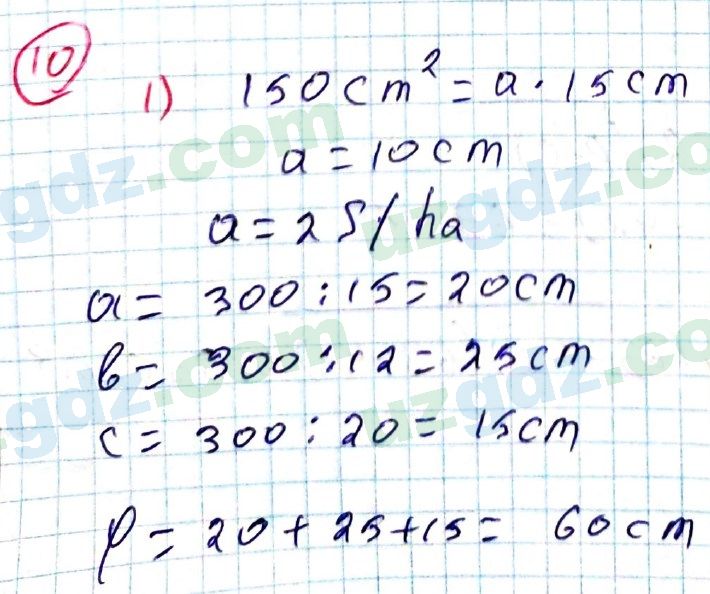 10
1) 150 cm² = a · 15 cm
a = 10 cm
a = 2S/ha
a = 300 : 15 = 20 cm
b = 300 : 12 = 25 cm
c = 300 : 20 = 15 cm
P = 20 + 25 + 15 = 60 cm
uzgdz.com